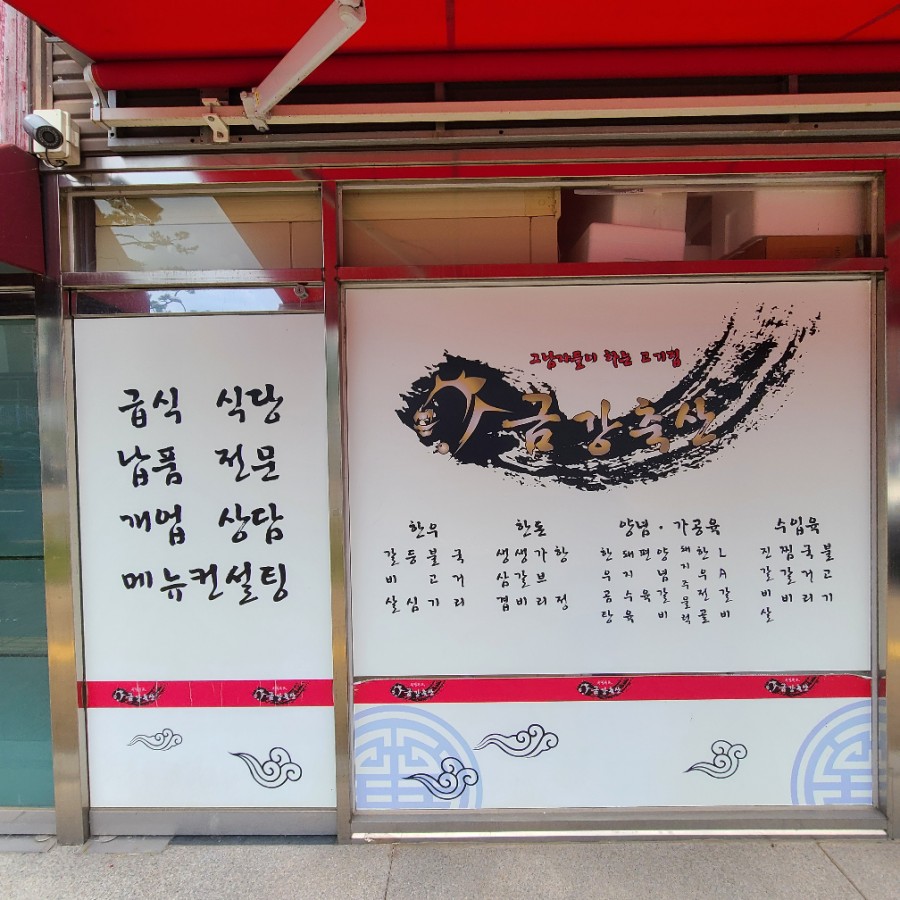 급식 식당
납품 전문
개업 상담
메뉴컨설팅
그남자들이 하는 고기집
금강축산
한우
갈비살
등심
불고기
국거리
한돈
생삼겹
생갈비
가브리
항정
양념·가공육
한우곰탕
돼지수육
편육
양념갈비
돼지주물럭
한우전골
LA갈비
수입육
진갈비살
찜갈비
국거리
불고기
금강축산
금강축산
금강축산
금강축산
금강축산